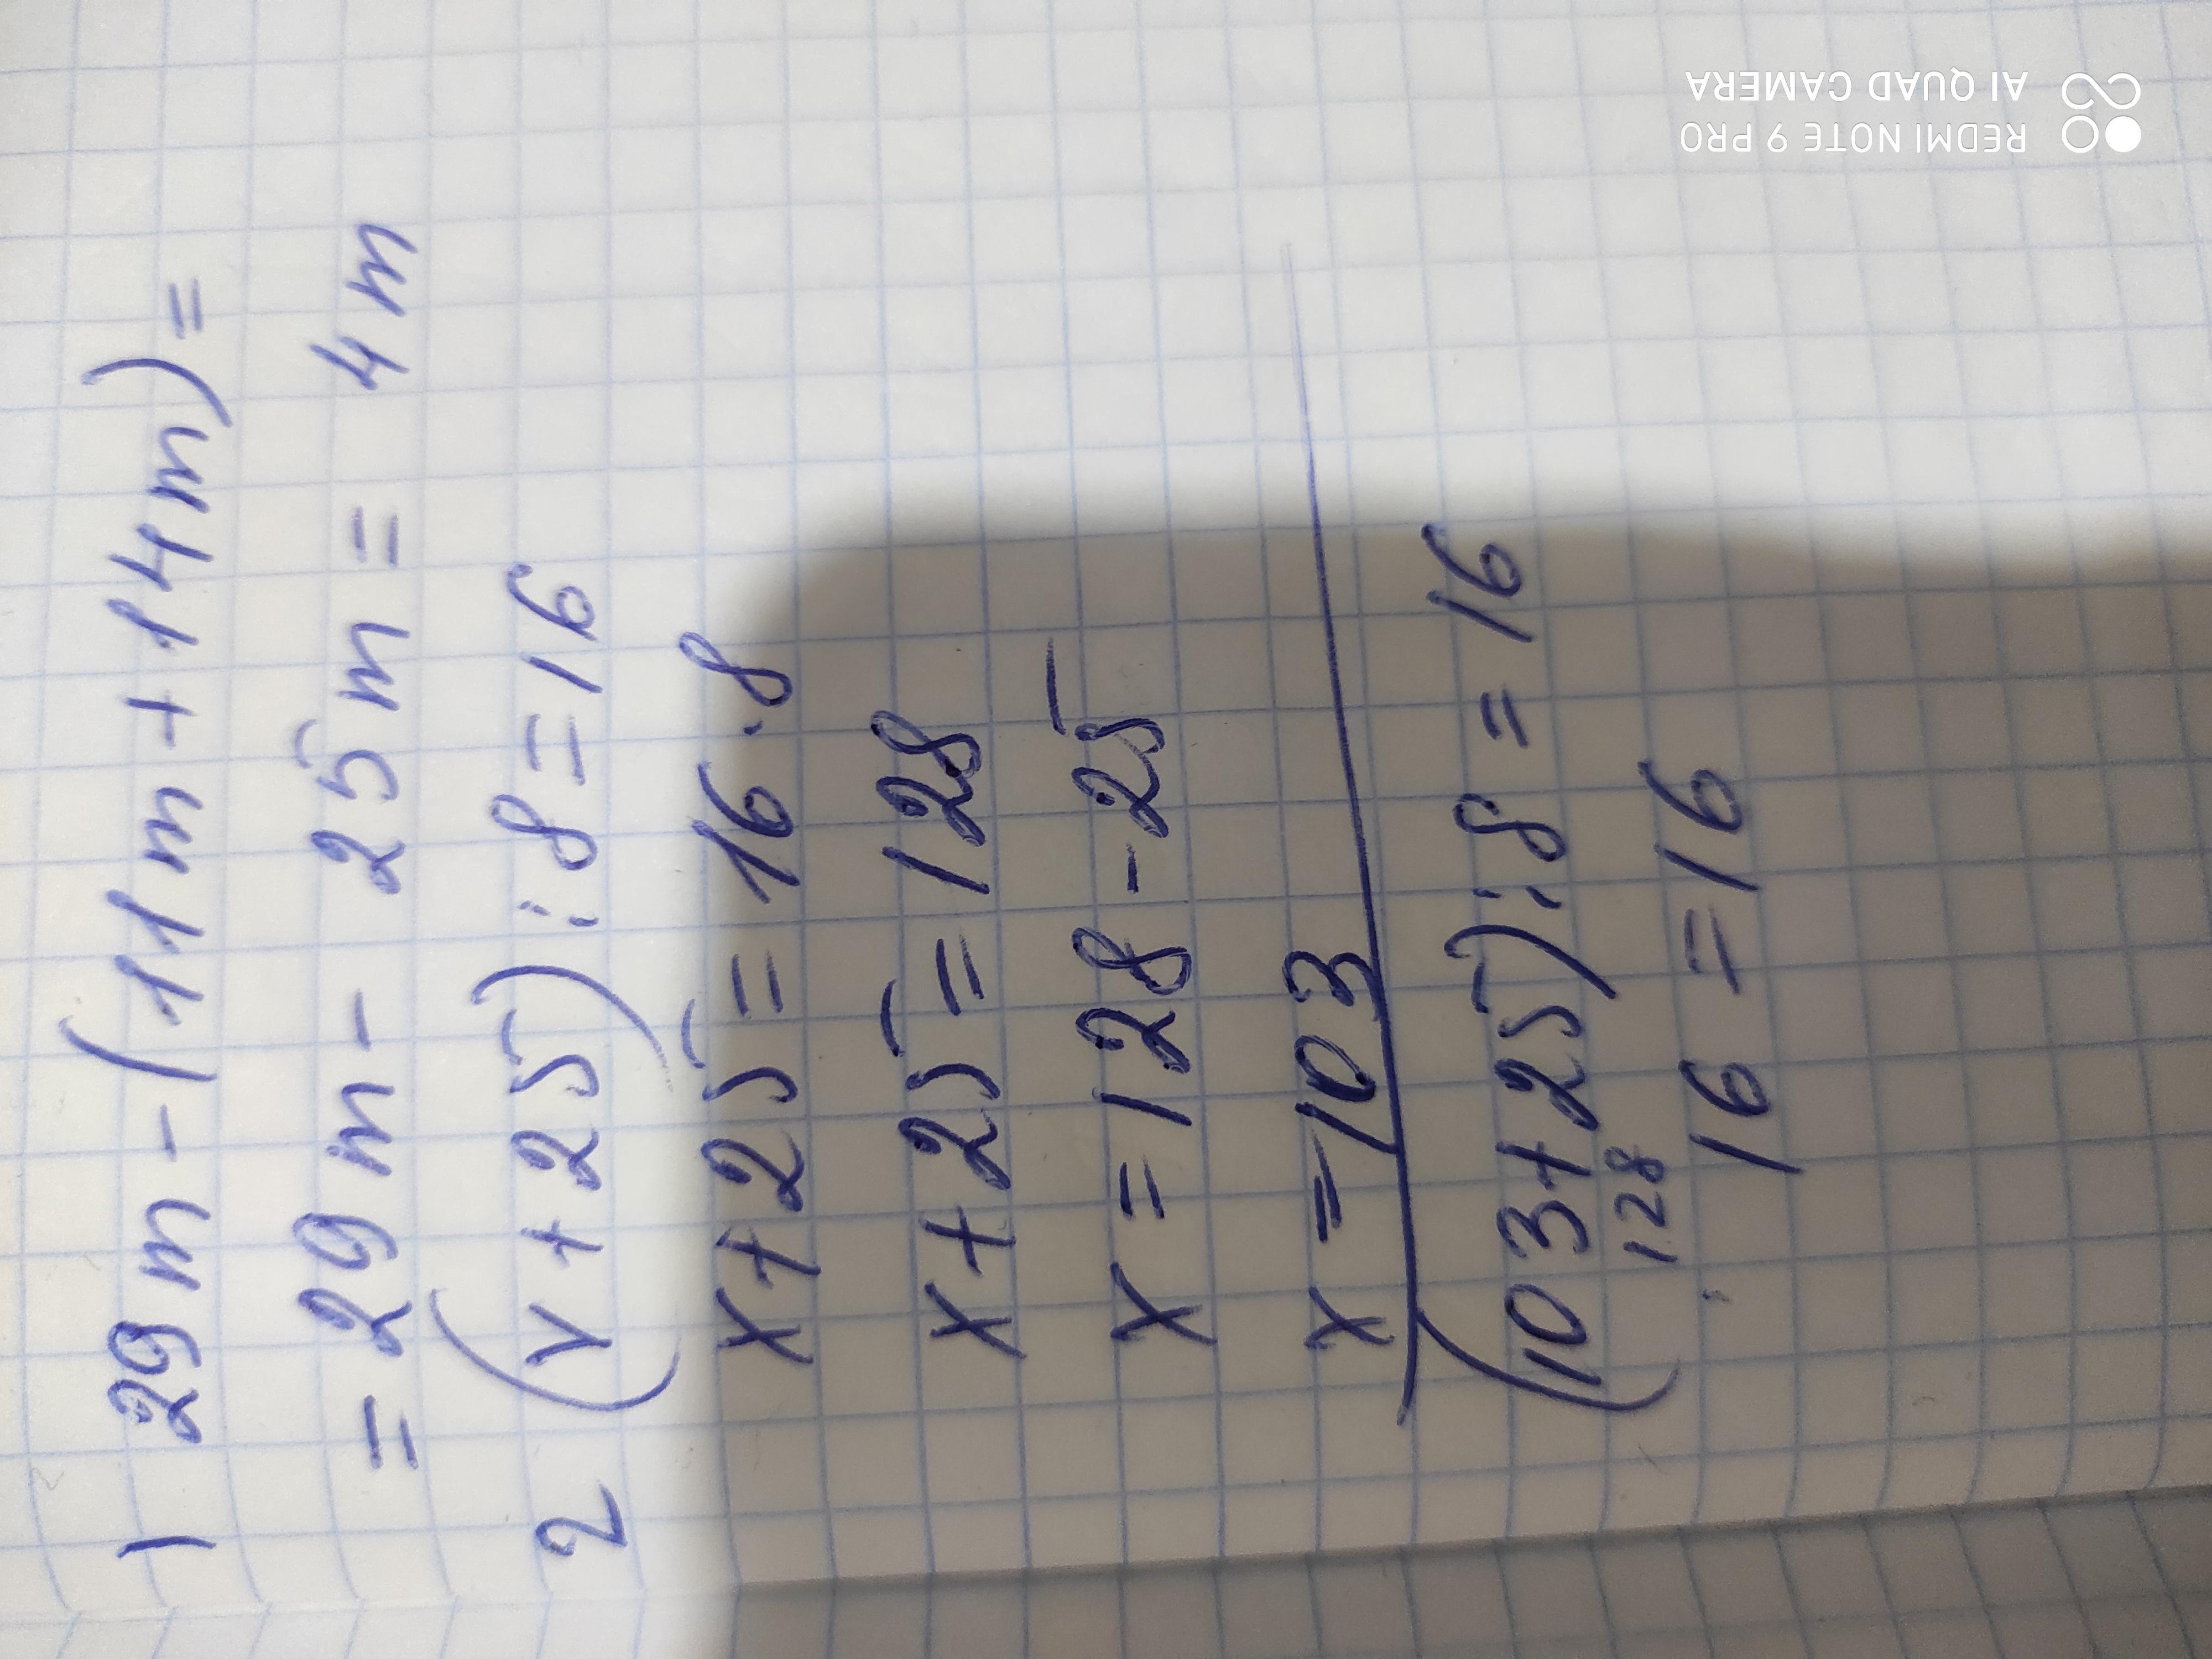 1 29m - (11m + 14m) =
= 29m - 25m = 4m
2 (x + 25) : 8 = 16
x + 25 = 16 · 8
x + 25 = 128
x = 128 - 25
x = 103
(103 + 25) : 8 = 16
128
16 = 16
REDMI NOTE 9 PRO
AI QUAD CAMERA